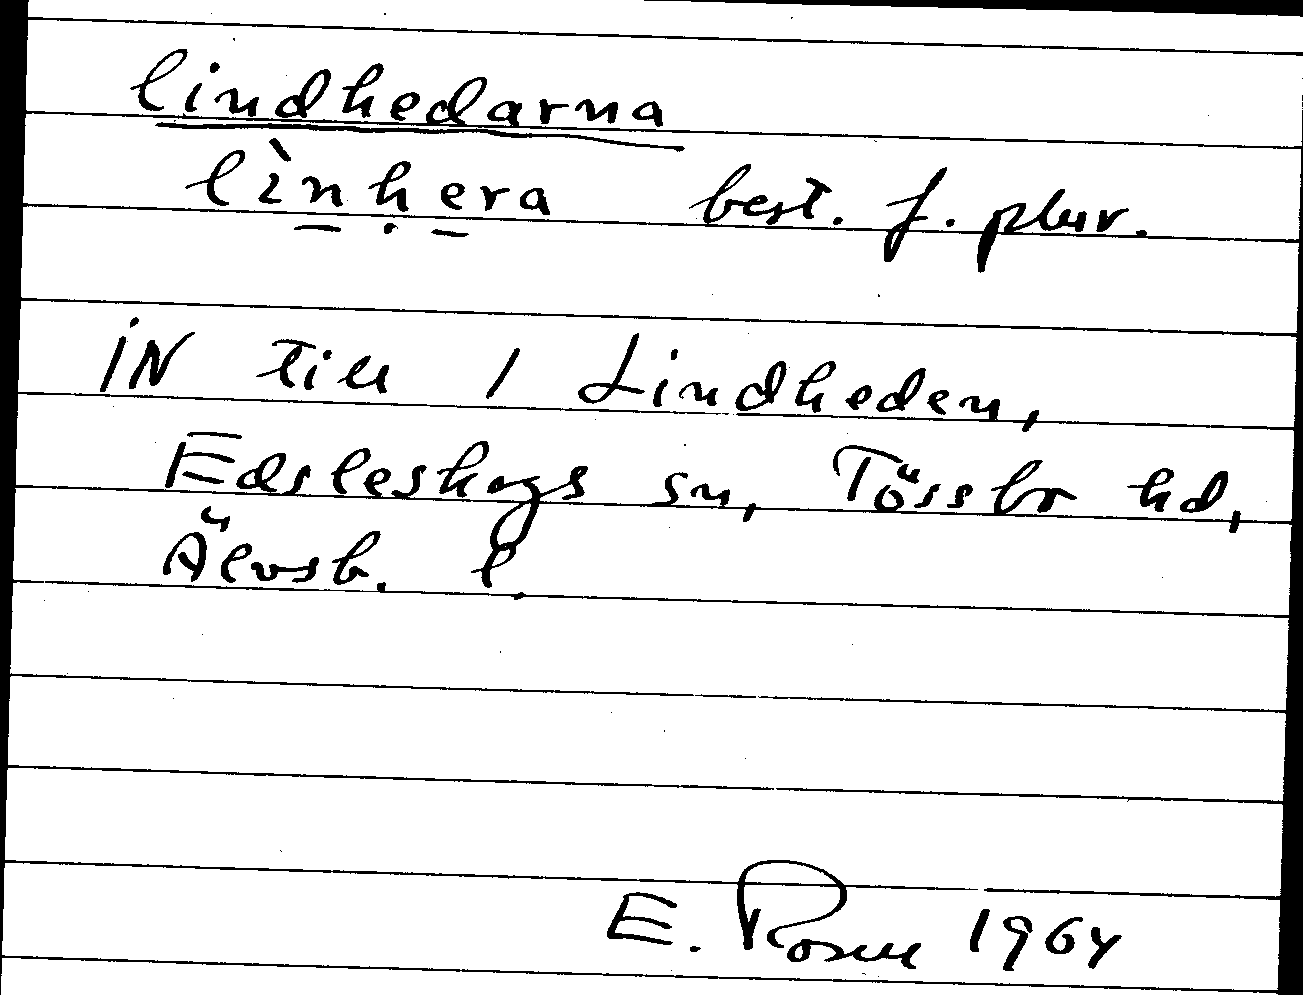 lindhedarna
lìnhera best. f. plur.
iN till 1 Lindheden,
Edsleskogs sn, Tössbo hd,
Älvsb. l.
E. Rosen 1964